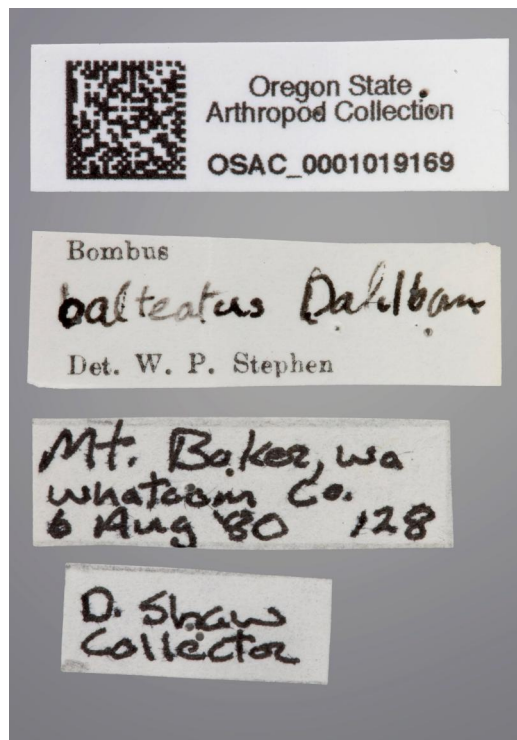 Oregon State
Arthropod Collection
OSAC_0001019169
Bombus
balteatus Dahlbom
Det. W. P. Stephen
Mt. Baker, wa
whatcom Co.
6 Aug '80 128
D. Shaw
Collector